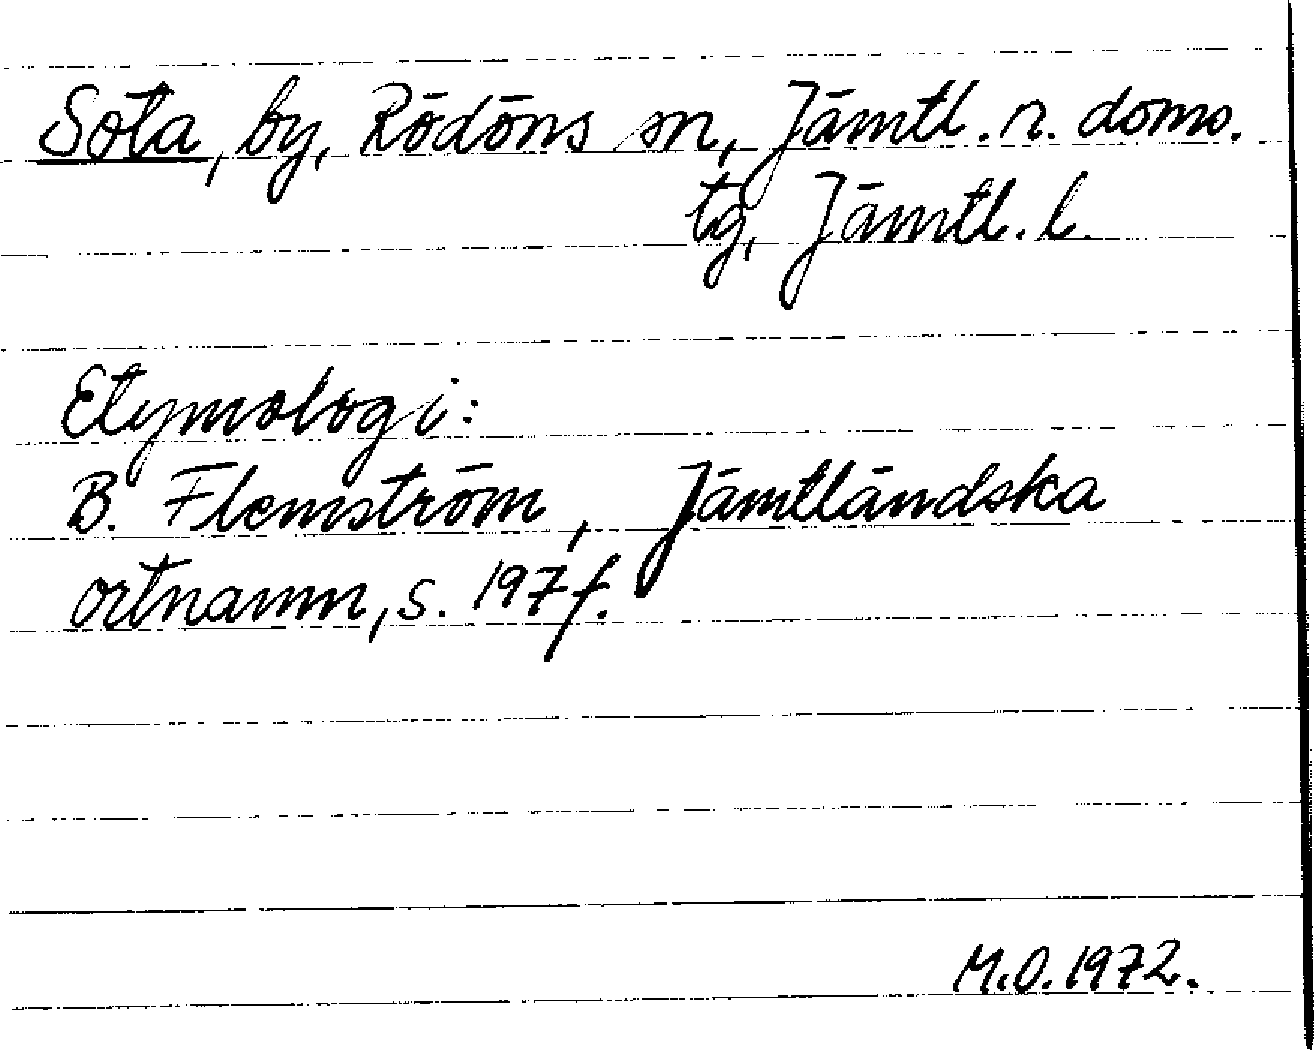 Sota, by, Rödöns sn, Jämtl. n. doms.
tg, Jämtl. l.
Etymologi:
B. Flemström, Jämtländska
ortnamn, s. 197 f.
M.O. 1972.